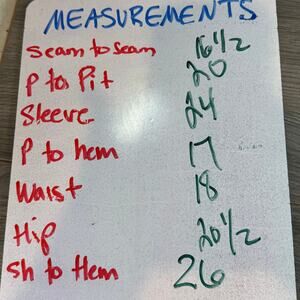 MEASUREMENTS
Seam to seam 16 1/2
P to Pit 20
Sleeve 24
P to hem 17
Waist 18
Hip 20 1/2
Sh to Hem 26